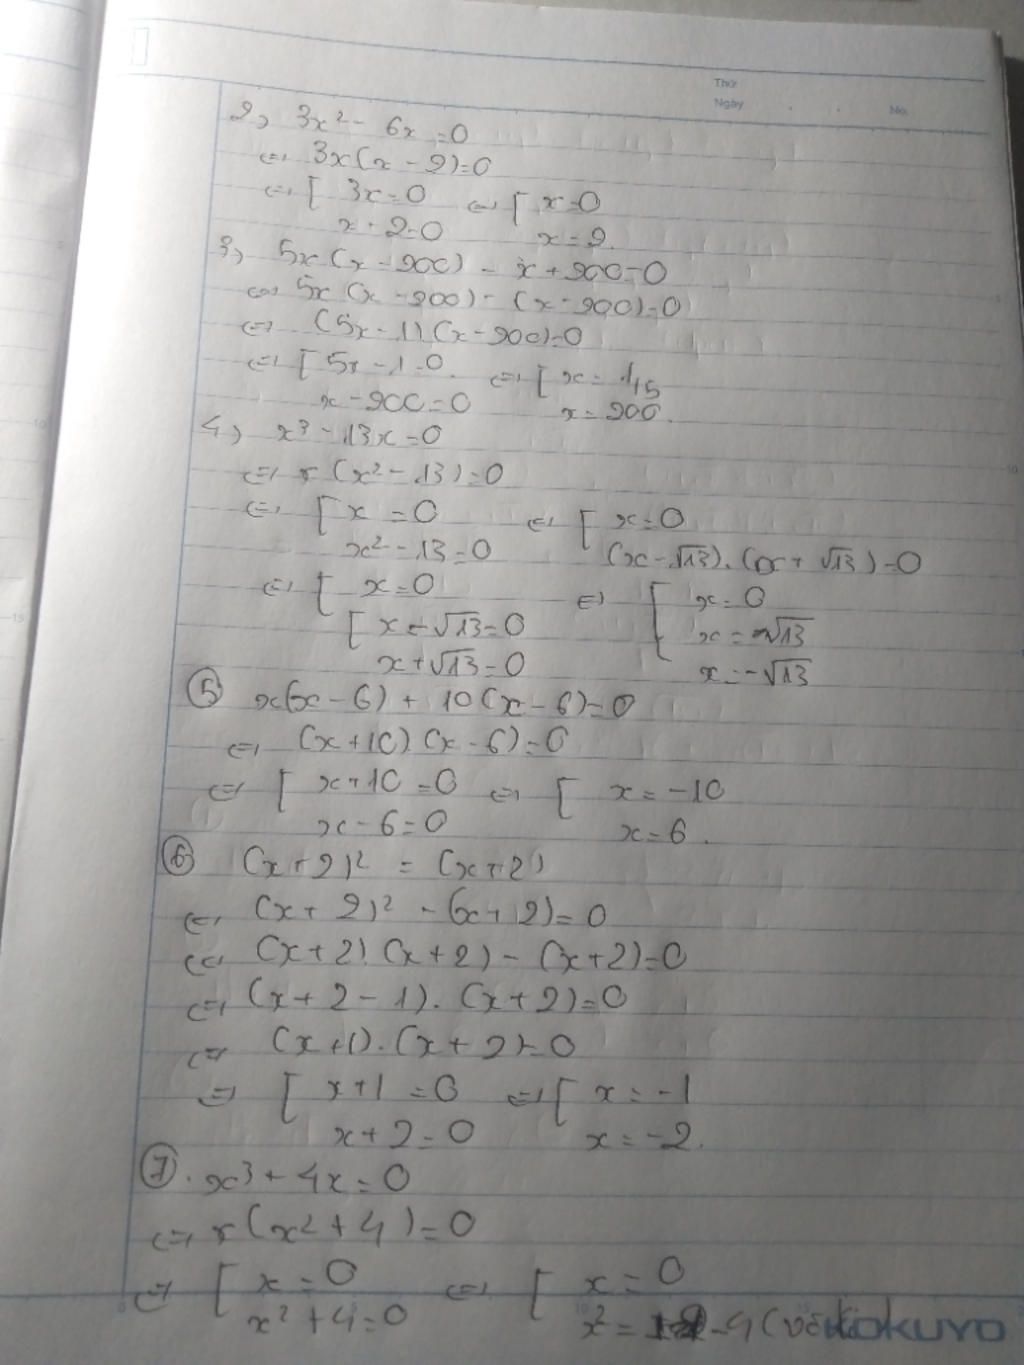 Thứ
Ngày . . No.
2, 3x² - 6x = 0
⇔ 3x(x - 2) = 0
⇔ [ 3x = 0 ⇔ [ x = 0
x - 2 = 0 x = 2.
3, 5x(x - 200) - x + 200 = 0
⇔ 5x(x - 200) - (x - 200) = 0
⇔ (5x - 1)(x - 200) = 0
⇔ [ 5x - 1 = 0. ⇔ [ x = 1/5
x - 200 = 0 x = 200.
4, x³ - 13x = 0
⇔ x(x² - 13) = 0
⇔ [ x = 0 ⇔ [ x = 0
x² - 13 = 0 (x - √13).(x + √13) = 0
⇔ [ x = 0 ⇔ [ x = 0
[ x - √13 = 0 x = √13
x + √13 = 0 x = -√13
⑤ x(x - 6) + 10(x - 6) = 0
⇔ (x + 10)(x - 6) = 0
⇔ [ x + 10 = 0 ⇔ [ x = -10
x - 6 = 0 x = 6.
⑥ (x + 2)² = (x + 2)
⇔ (x + 2)² - (x + 2) = 0
⇔ (x + 2)(x + 2) - (x + 2) = 0
⇔ (x + 2 - 1).(x + 2) = 0
⇔ (x + 1).(x + 2) = 0
⇔ [ x + 1 = 0 ⇔ [ x = -1
x + 2 = 0 x = -2.
⑦. x³ + 4x = 0
⇔ x(x² + 4) = 0
⇔ [ x = 0 ⇔ [ x = 0
x² + 4 = 0 x² = -4 (
KOKUYO